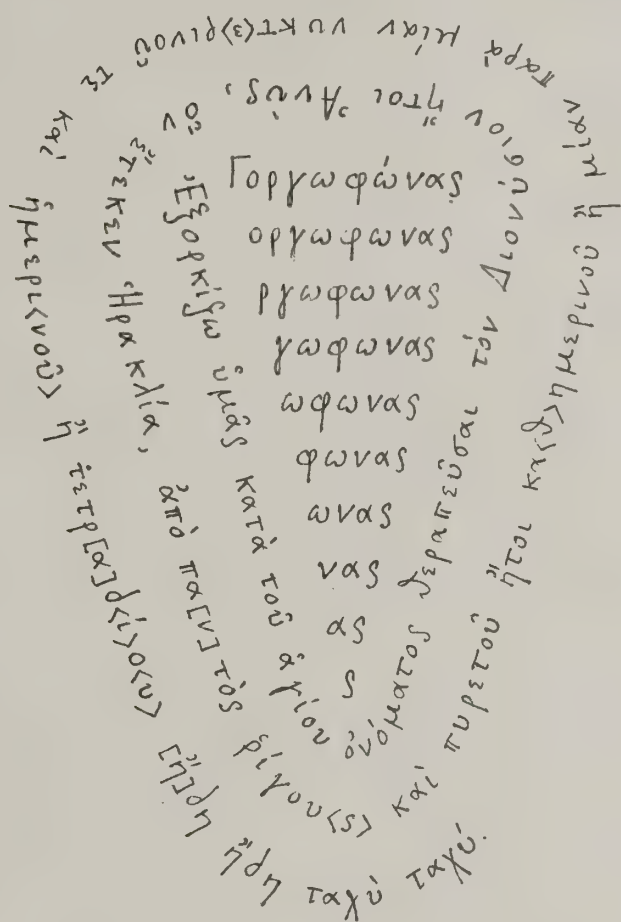 Γοργωφώνας
οργωφωνας
ργωφωνας
γωφωνας
ωφωνας
φωνας
ωνας
νας
ας
ς
Ἐξορκίζω ὑμᾶς κατὰ τοῦ ἁγίου ὀνόματος θεραπεῦσαι τὸν Διονύσιον ἤτοι Ἀνύς, ὃν ἔτεκεν Ἡρακλία, ἀπὸ πα[ν]τὸς ῥίγου<ς> καὶ πυρετοῦ ἤτοι κα<θ>ημερινοῦ ἢ μίαν παρὰ μίαν νυκτ<ε>ρινοῦ τε καὶ ἡμερι<νοῦ> ἢ τετρ[α]δ<ί>ο<υ> [ἤ]δη ἤδη ταχὺ ταχύ.